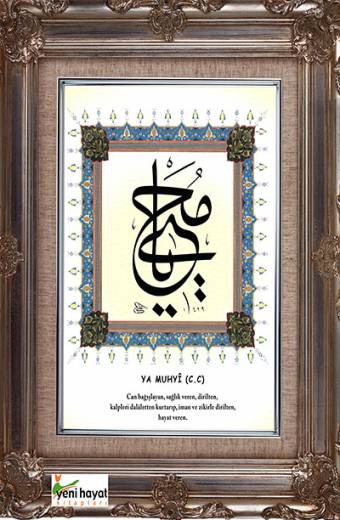 يا محيي
١٤٢٩
YA MUHYÎ (C.C)
Can bağışlayan, sağlık veren, dirilten,
kalpleri dalaletten kurtarıp, iman ve zikirle dirilten,
hayat veren.
yeni hayat
kitapları